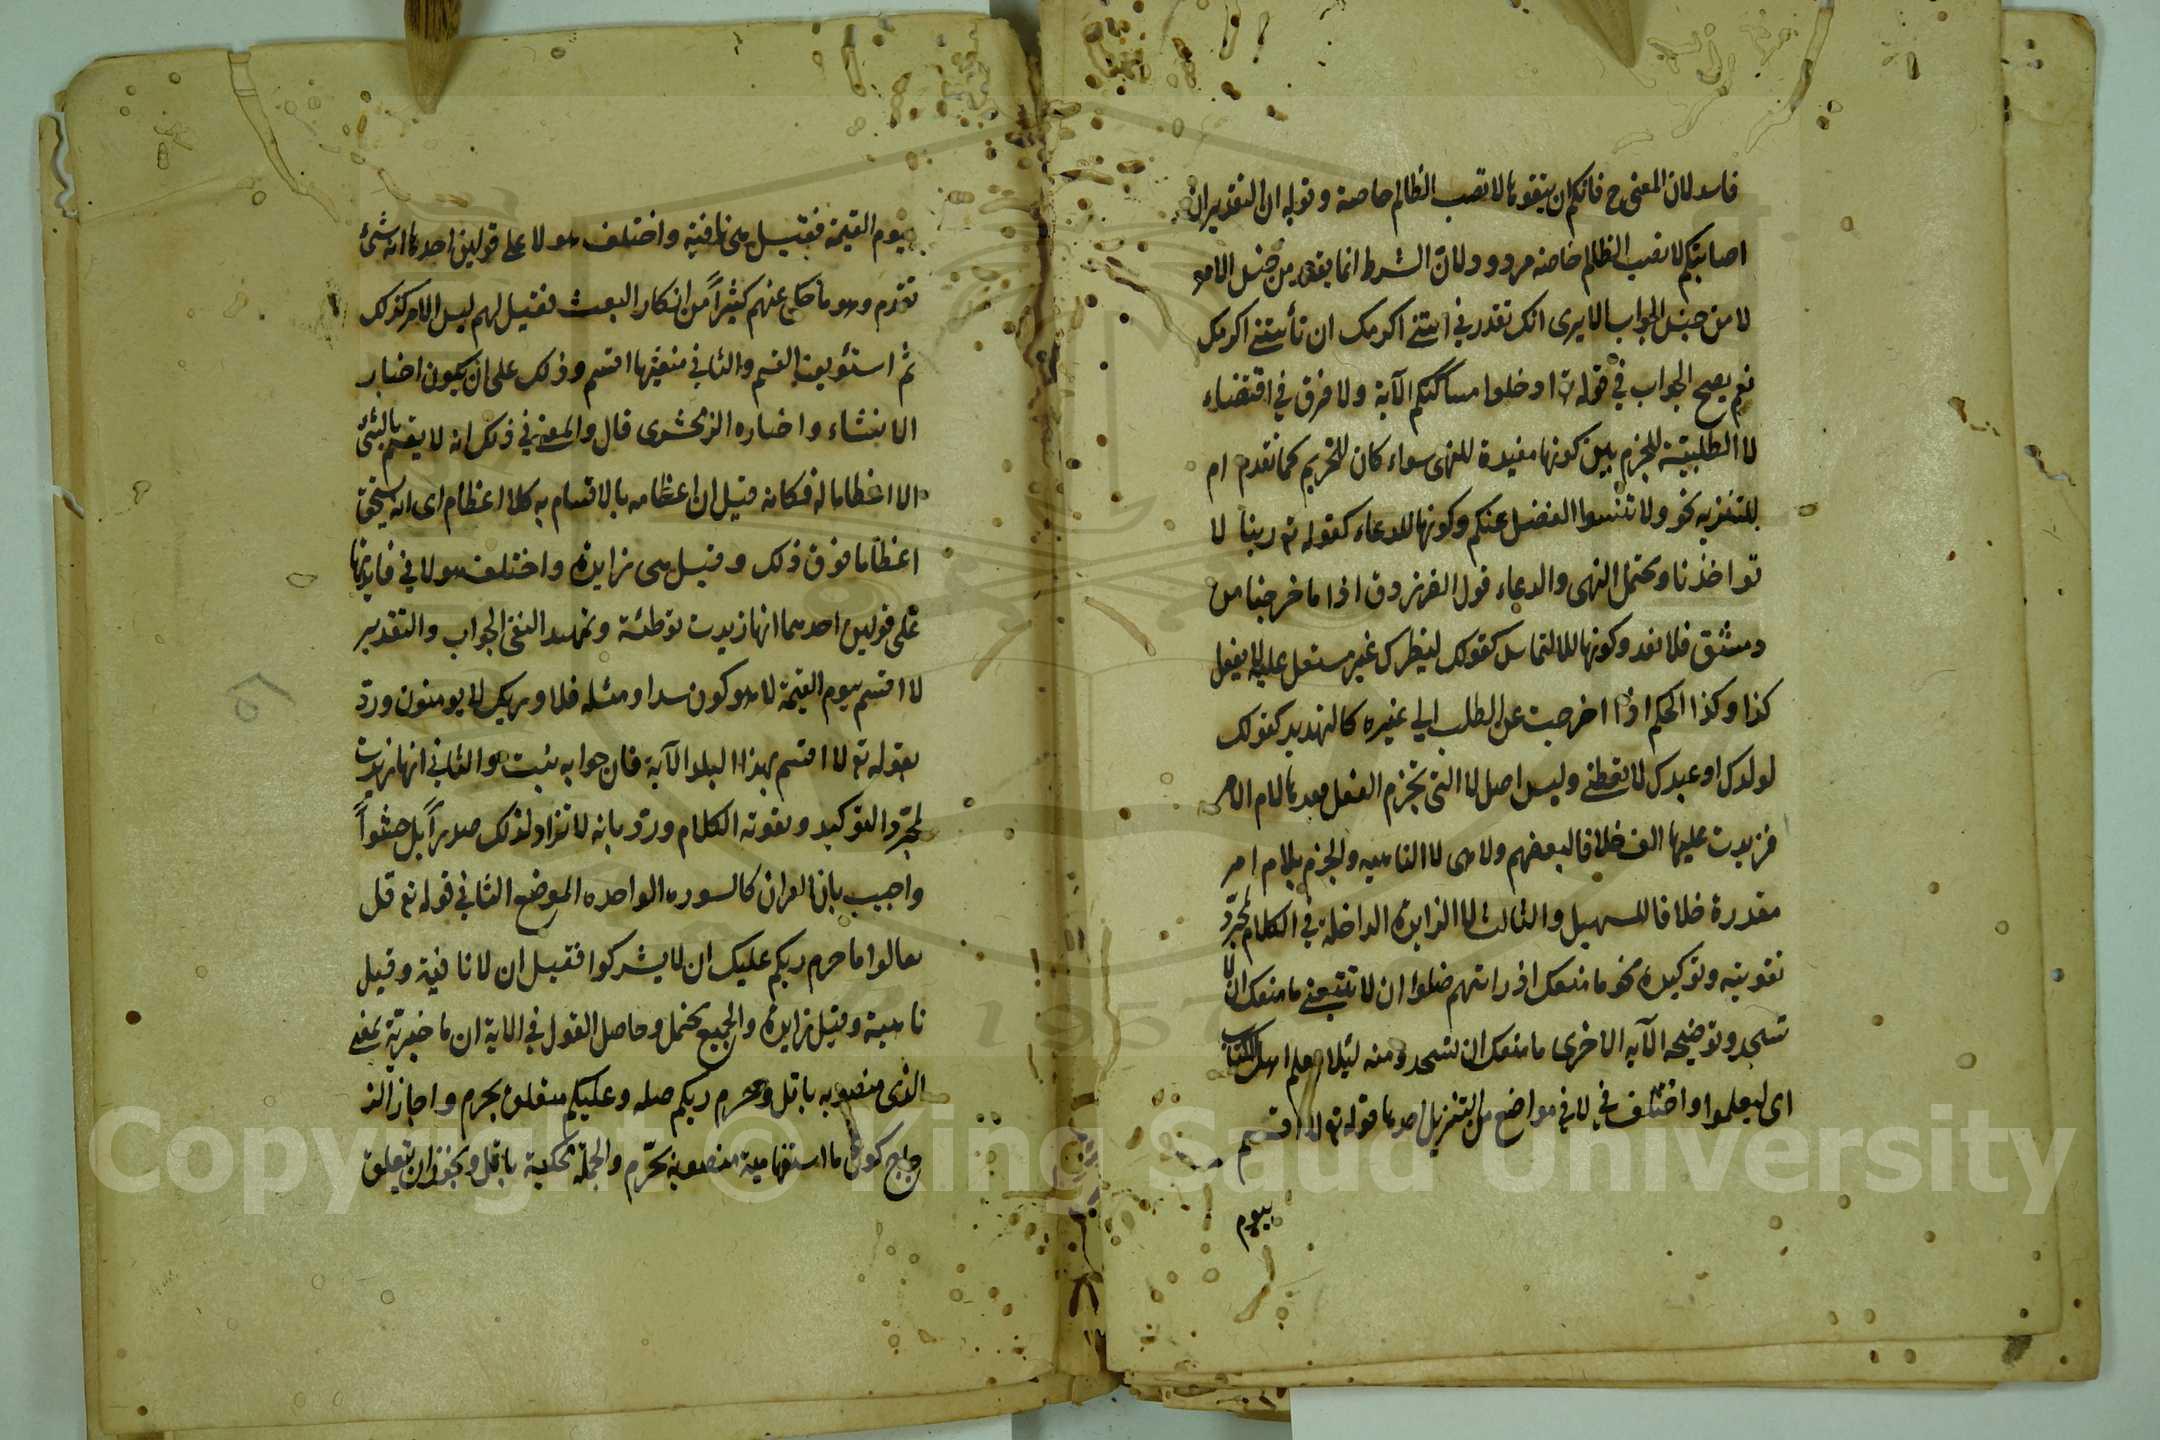 فاسد لان المعنى ح فانكم ان تتقوها لا تصب الظالم خاصة وقوله ان التقدير ان
اصابتكم لا تصب الظالم خاصة مردود لان الشرط انما يقدر من جنس الامر
لا من جنس الجواب الا يرى انك تقدر في ايتني اكرمك ان تأتيني اكرمك
نعم يصح الجواب في قوله تع ادخلوا مساكنكم الآية ولا فرق في اقتضاء
لا الطلبية للجزم بين كونها مفيدة للنهى سواء كان للتحريم كما تقدم ام
للتنزيه نحو ولا تنسوا الفضل عنكم وكونها للدعاء كقوله تع ربنا لا
تواخذنا ويحتمل النهى والدعاء قول الفرزدق اذا ما خرجنا من
دمشق فلا نعد وكونها للالتماس كقولك لنظيرك غير مستعل عليه لا يفعل
كذا وكذا الحكم اذا اخرجت عن الطلب الي غيره كالتهديد كقولك
لولدك او عبدك لا تطعني وليس اصل لا التى تجزم الفعل بعدها لام الامر
فزيدت عليها الف خلافا لبعضهم ولا هى لا النافيه والجزم بلام امر
مقدرة خلافا للسهيلي والثالث لا الزايدة الداخلة في الكلام لمجرّد
تقويته وتوكيده نحو ما منعك اذ رايتهم ضلوا ان لا تتبعني ما منعك ان لا
تسجد وتوضيحه الآيه الاخرى ما منعك ان تسجد ومنه لئلا يعلم اهل الكتاب
اى ليعلموا واختلف في لا في مواضع من التنزيل احدها قوله تع لا اقسم
بيوم
بيوم القيمة فقيل هى نافية واختلف هولا على قولين احدها انه شئ
تقدم وهو ما حكى عنهم كثيراً من انكار البعث فقيل لهم ليس الامر كذلك
ثم استؤنف القسم والثاني منفيها اقسم وذلك على ان يكون اخبار
الا انشاء واختاره الزمخشرى قال والمعنى في ذلك انه لا يقسم بالشئ
الا اعظاما له فكانه قيل ان اعظامه بالاقسام به كلا اعظام اى انه يستحق
اعظاما فوق ذلك وقيل هى زايدة واختلف هولا في فايدتها
على قولين احدهما انها زيدت توطئة وتمهيدا لنفى الجواب والتقدير
لا اقسم بيوم القيمة لا هو كون سدا ومثله فلا وربك لا يومنون وردّ
بقوله تع لا اقسم بهذا البلد الآية فان جوابه مثبت والثاني انها زيدت
لمجرّد التوكيد وتقوته الكلام وردّ بانه لا تزاد لذلك صدراً بل حشواً
واجيب بان القران كالسوره الواحده الموضع الثاني قوله تع قل
تعالوا ما حرم ربكم عليك ان لا يشركوا فقيل ان لا نافية وقيل
ناهية وقيل زايدة والجميع محتمل وحاصل القول في الاية ان ما خبرية بمعنى
الذى منصوبه باتل وحرم ربكم صله وعليكم متعلق بحرم واجاز الز
جاج كون ما استفهامية منصوبة بحرّم والجملة محكية باتل ويجوز ان يتعلق
Copyright © King Saud University
1957